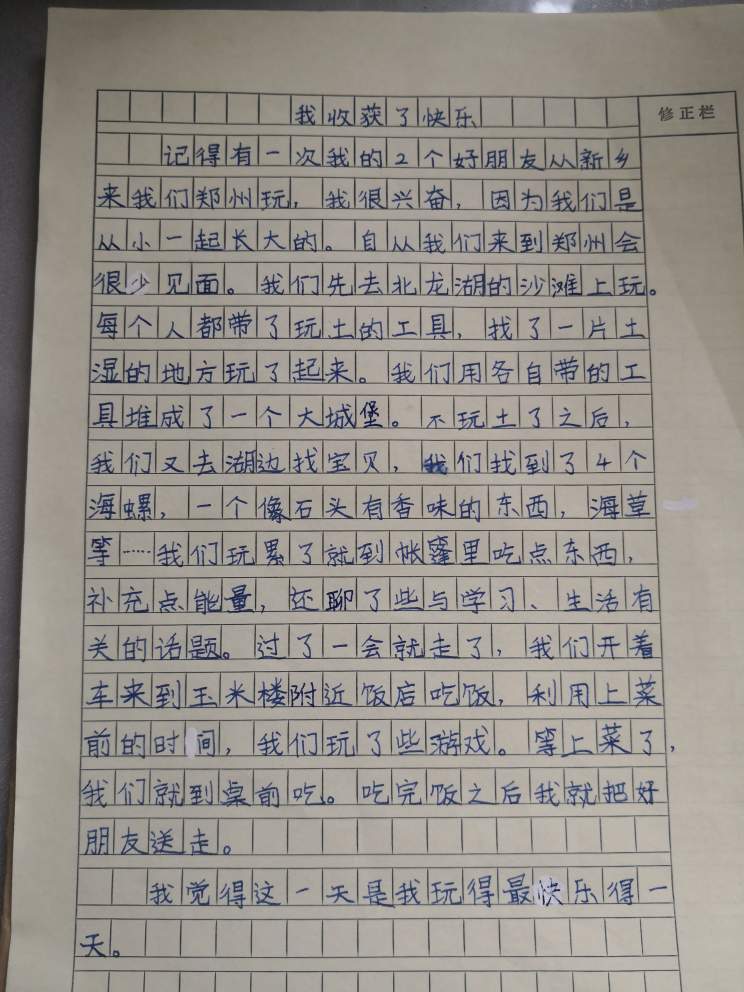 我收获了快乐
修正栏
记得有一次我的2个好朋友从新乡
来我们郑州玩，我很兴奋，因为我们是
从小一起长大的。自从我们来到郑州会
很少见面。我们先去北龙湖的沙滩上玩。
每个人都带了玩土的工具，找了一片土
湿的地方玩了起来。我们用各自带的工
具堆成了一个大城堡。不玩土了之后，
我们又去湖边找宝贝，我们找到了4个
海螺，一个像石头有香味的东西，海草
等……我们玩累了就到帐篷里吃点东西，
补充点能量，还聊了些与学习、生活有
关的话题。过了一会就走了，我们开着
车来到玉米楼附近饭店吃饭，利用上菜
前的时间，我们玩了些游戏。等上菜了，
我们就到桌前吃。吃完饭之后我就把好
朋友送走。
我觉得这一天是我玩得最快乐得一
天。